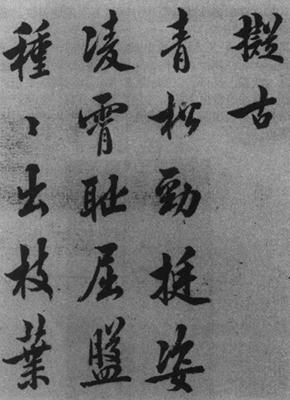 擬古
青松勁挺姿
凌霄耻屈盤
種〻出枝葉